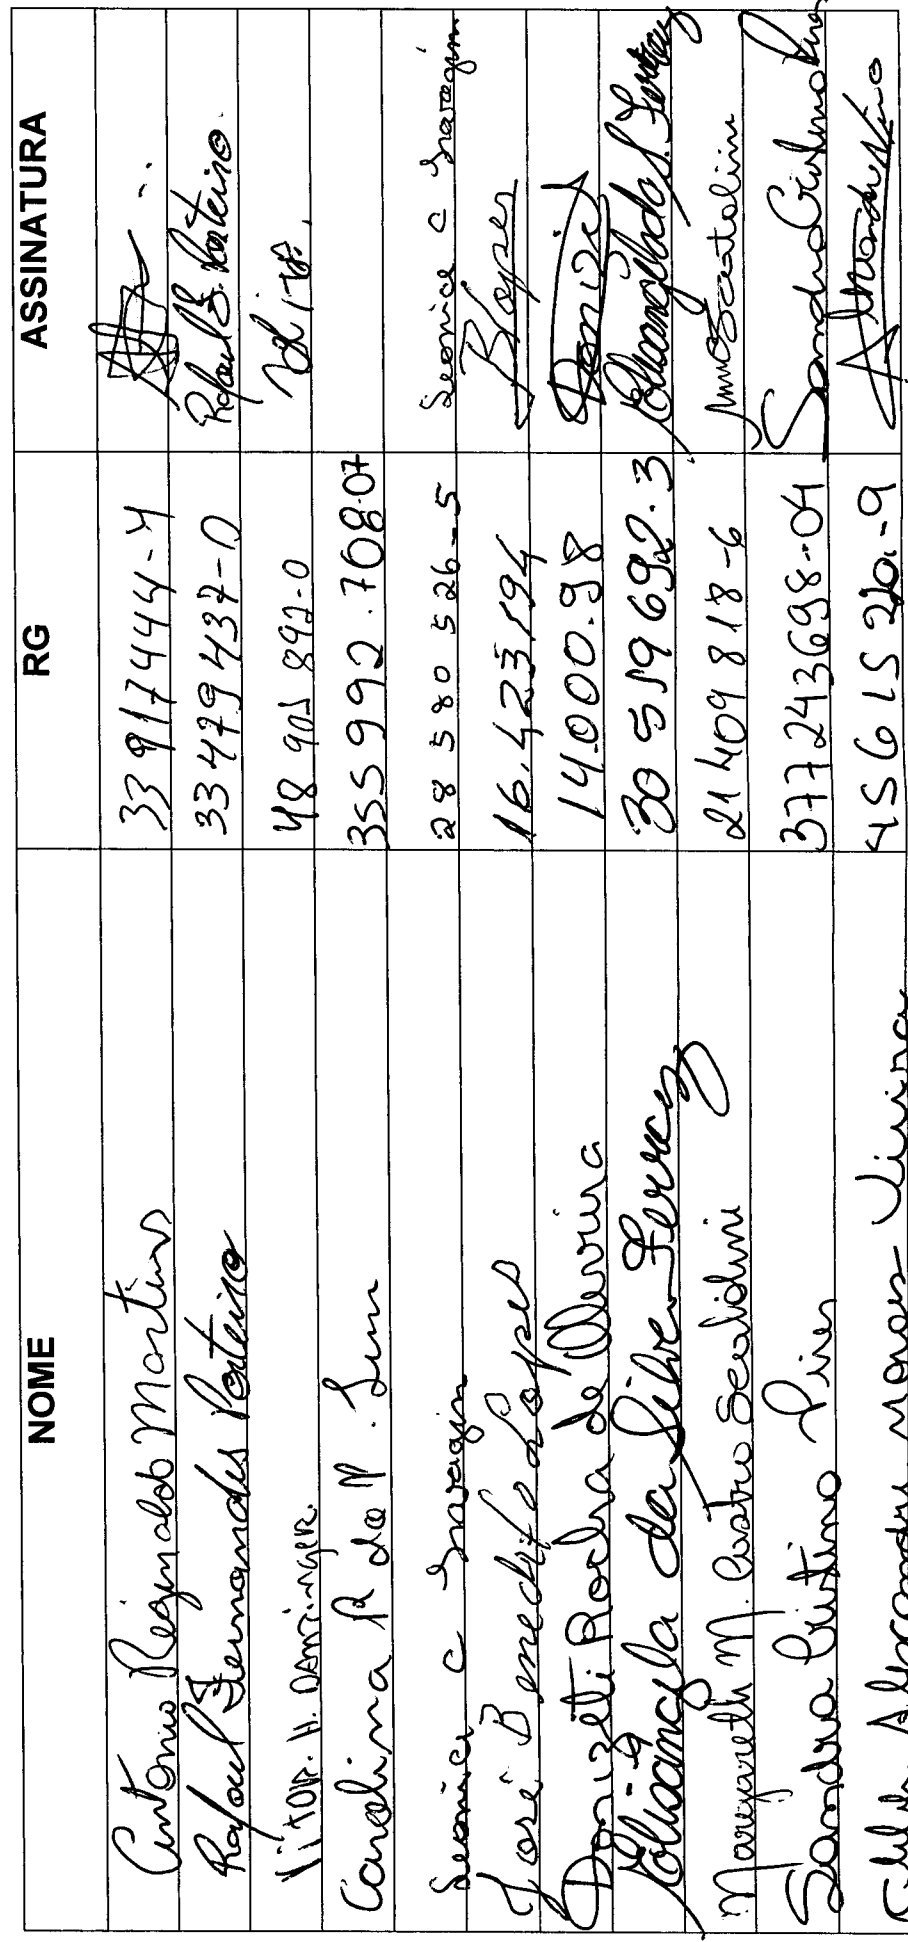 NOME RG ASSINATURA
Antonio Reginaldo Martins 33917444-4
Rafael Fernandes Porteiro 33479437-0 Rafael F. Porteiro
Vitor. H. DANTINGER. 48 905 892-0 Vitor
Carolina R de M. Lima 355992.708-07
Leonice C 28580526-5 Leonice C
José Benedito Lopes 16.423194 BLopes
Donizeti Rocha de Oliveira 14.000.98 Donizeti
Elisangela da Silva Ferraz 30 519 692.3 Elisangela da S. Ferraz
Margareth M. Castro 21 409 818-6
Sandra Cristina Pires 377243698-04 Sandra Cristina Pires
Alexandre Vieira 45615 -9